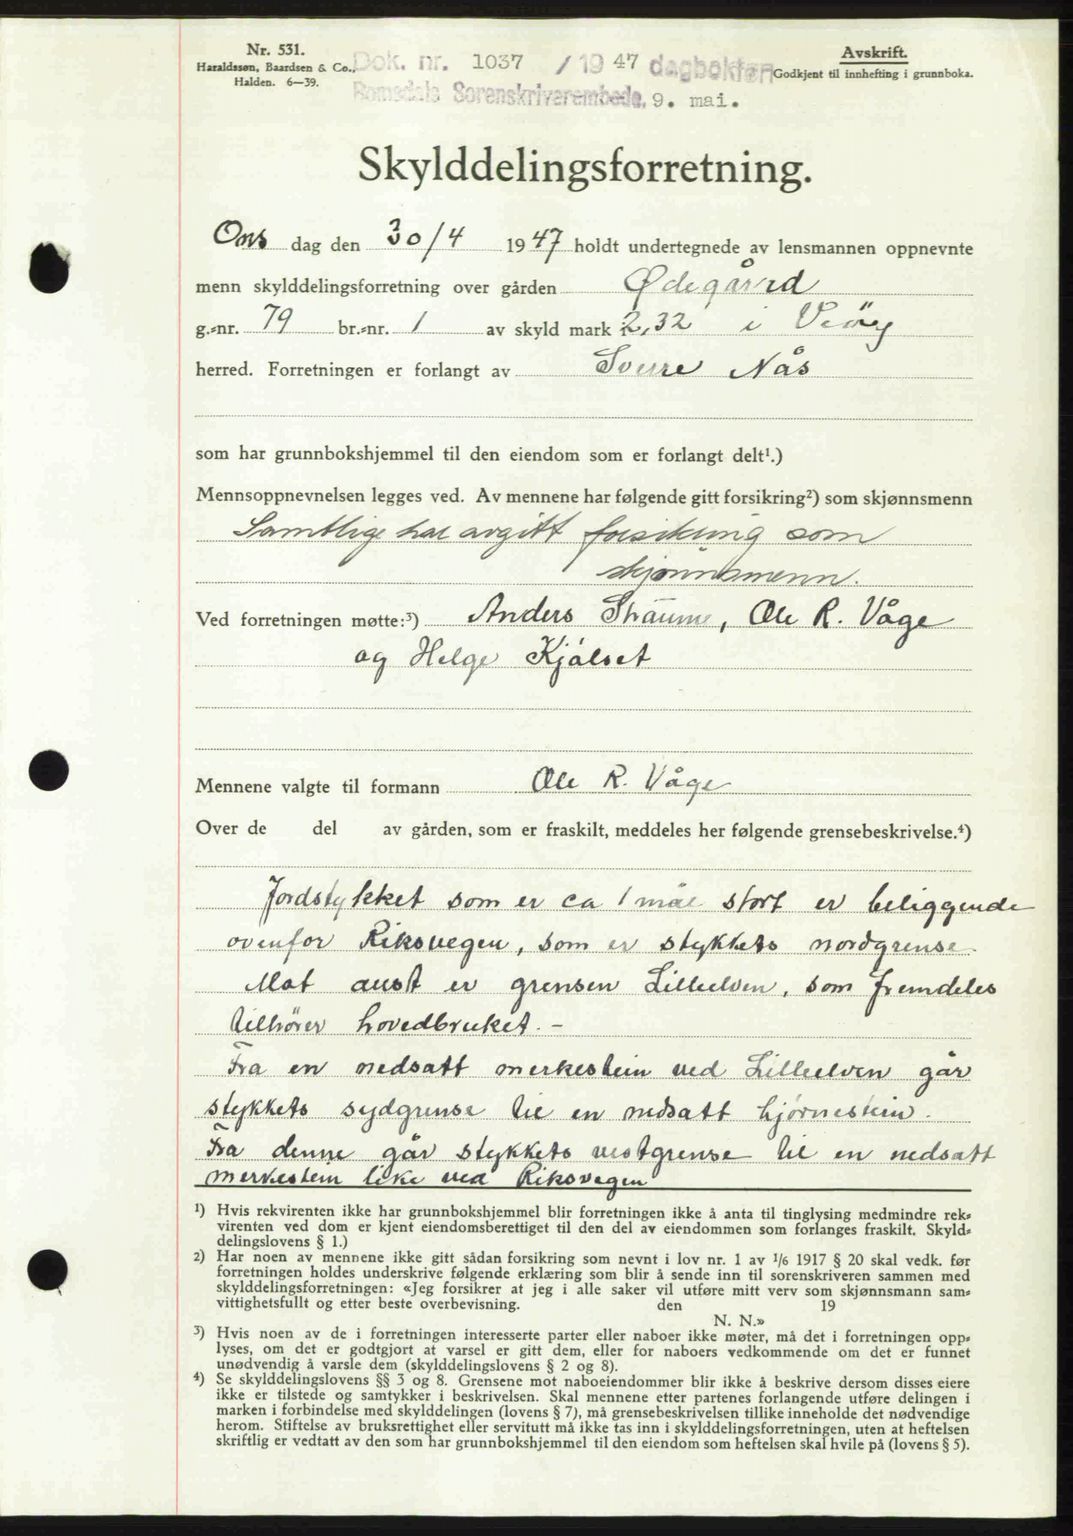 Nr. 531.
Haraldssøn, Baardsen & Co.,
Halden. 6—39.
Dok. nr. 1037 / 1947 dagboken
Romsdals Sorenskriverembede, 9. mai.
Avskrift.
Godkjent til innhefting i grunnboka.
Skylddelingsforretning.
Ons dag den 30/4 1947 holdt undertegnede av lensmannen oppnevnte
menn skylddelingsforretning over gården Ødegård
g.-nr. 79 br.-nr. 1 av skyld mark 2,32 i Veøy
herred. Forretningen er forlangt av Sverre Nås
som har grunnbokshjemmel til den eiendom som er forlangt delt¹.)
Mennsoppnevnelsen legges ved. Av mennene har følgende gitt forsikring²) som skjønnsmenn
Samtlige har avgitt forsikring som
skjønnsmenn.
Ved forretningen møtte:³) Anders Straume, Ole R. Våge
og Helge Kjølset
Mennene valgte til formann Ole R. Våge
Over de del av gården, som er fraskilt, meddeles her følgende grensebeskrivelse.⁴)
Jordstykket som er ca 1 mål stort er beliggende
ovenfor Riksvegen, som er stykkets nordgrense.
Mot aust er grensen Lilleelven, som fremdeles
tilhører hovedbruket. –
Fra en nedsatt merkestein ved Lilleelven går
stykkets sydgrense til en nedsatt hjørnestein.
Fra denne går stykkets vestgrense til en nedsatt
merkestein like ved Riksvegen
¹) Hvis rekvirenten ikke har grunnbokshjemmel blir forretningen ikke å anta til tinglysing medmindre rek-
virenten ved dom er kjent eiendomsberettiget til den del av eiendommen som forlanges fraskilt. Skyld-
delingslovens § 1.)
²) Har noen av mennene ikke gitt sådan forsikring som nevnt i lov nr. 1 av 1/6 1917 § 20 skal vedk. før
forretningen holdes underskrive følgende erklæring som blir å sende inn til sorenskriveren sammen med
skylddelingsforretningen: «Jeg forsikrer at jeg i alle saker vil utføre mitt verv som skjønnsmann sam-
vittighetsfullt og etter beste overbevisning. den 19
N. N.»
³) Hvis noen av de i forretningen interesserte parter eller naboer ikke møter, må det i forretningen opp-
lyses, om det er godtgjort at varsel er gitt dem, eller for naboers vedkommende om det er funnet
unødvendig å varsle dem (skylddelingslovens § 2 og 8).
⁴) Se skylddelingslovens §§ 3 og 8. Grensene mot naboeiendommer blir ikke å beskrive dersom disses eiere
ikke er tilstede og samtykker i beskrivelsen. Skal mennene etter partenes forlangende utføre delingen i
marken i forbindelse med skylddelingen (lovens § 7), må grensebeskrivelsen tillike inneholde det nødvendige
herom. Stiftelse av bruksrettighet eller servitutt må ikke tas inn i skylddelingsforretningen, uten at heftelsen
skriftlig er vedtatt av den som har grunnbokshjemmel til den eiendom som heftelsen skal hvile på (lovens § 5).